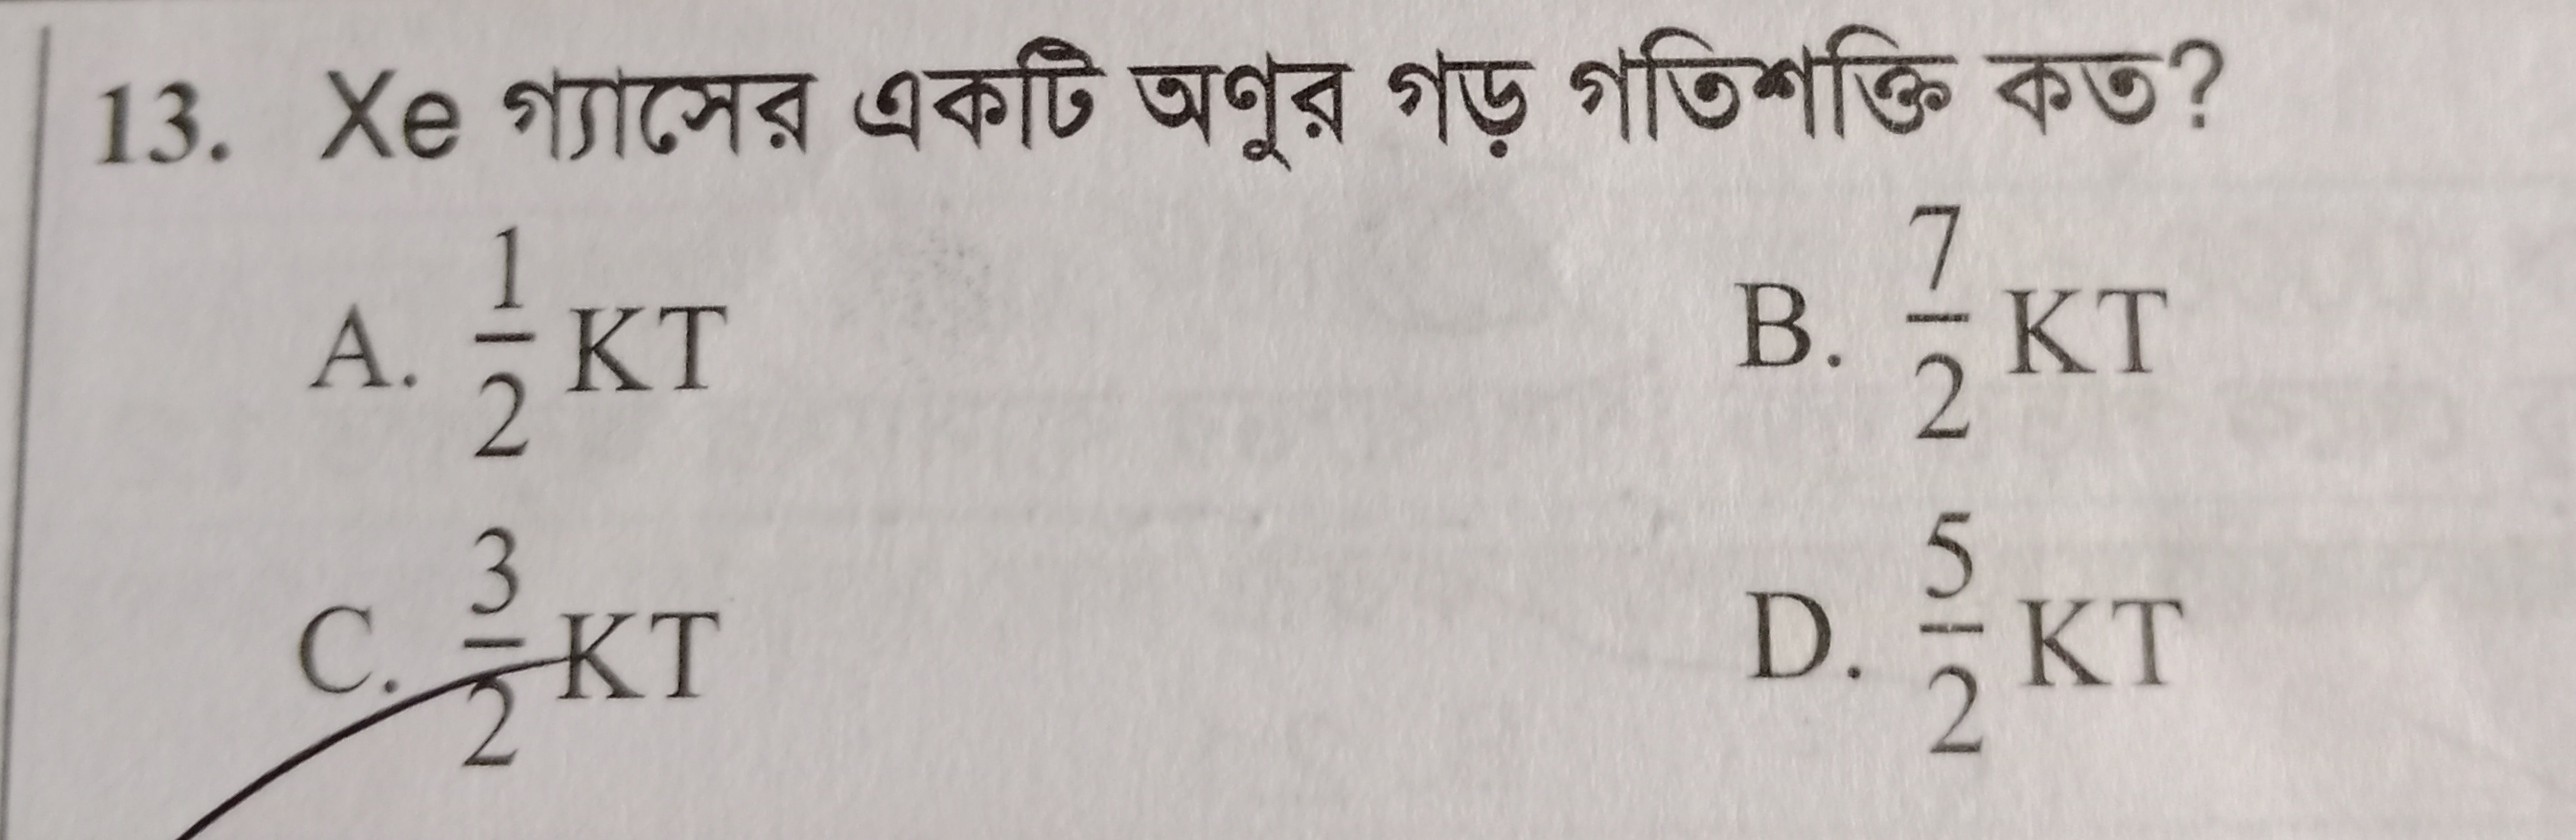 13. Xe গ্যাসের একটি অণুর গড় গতিশক্তি কত?
A. 1/2 KT B. 7/2 KT
C. 3/2 KT D. 5/2 KT